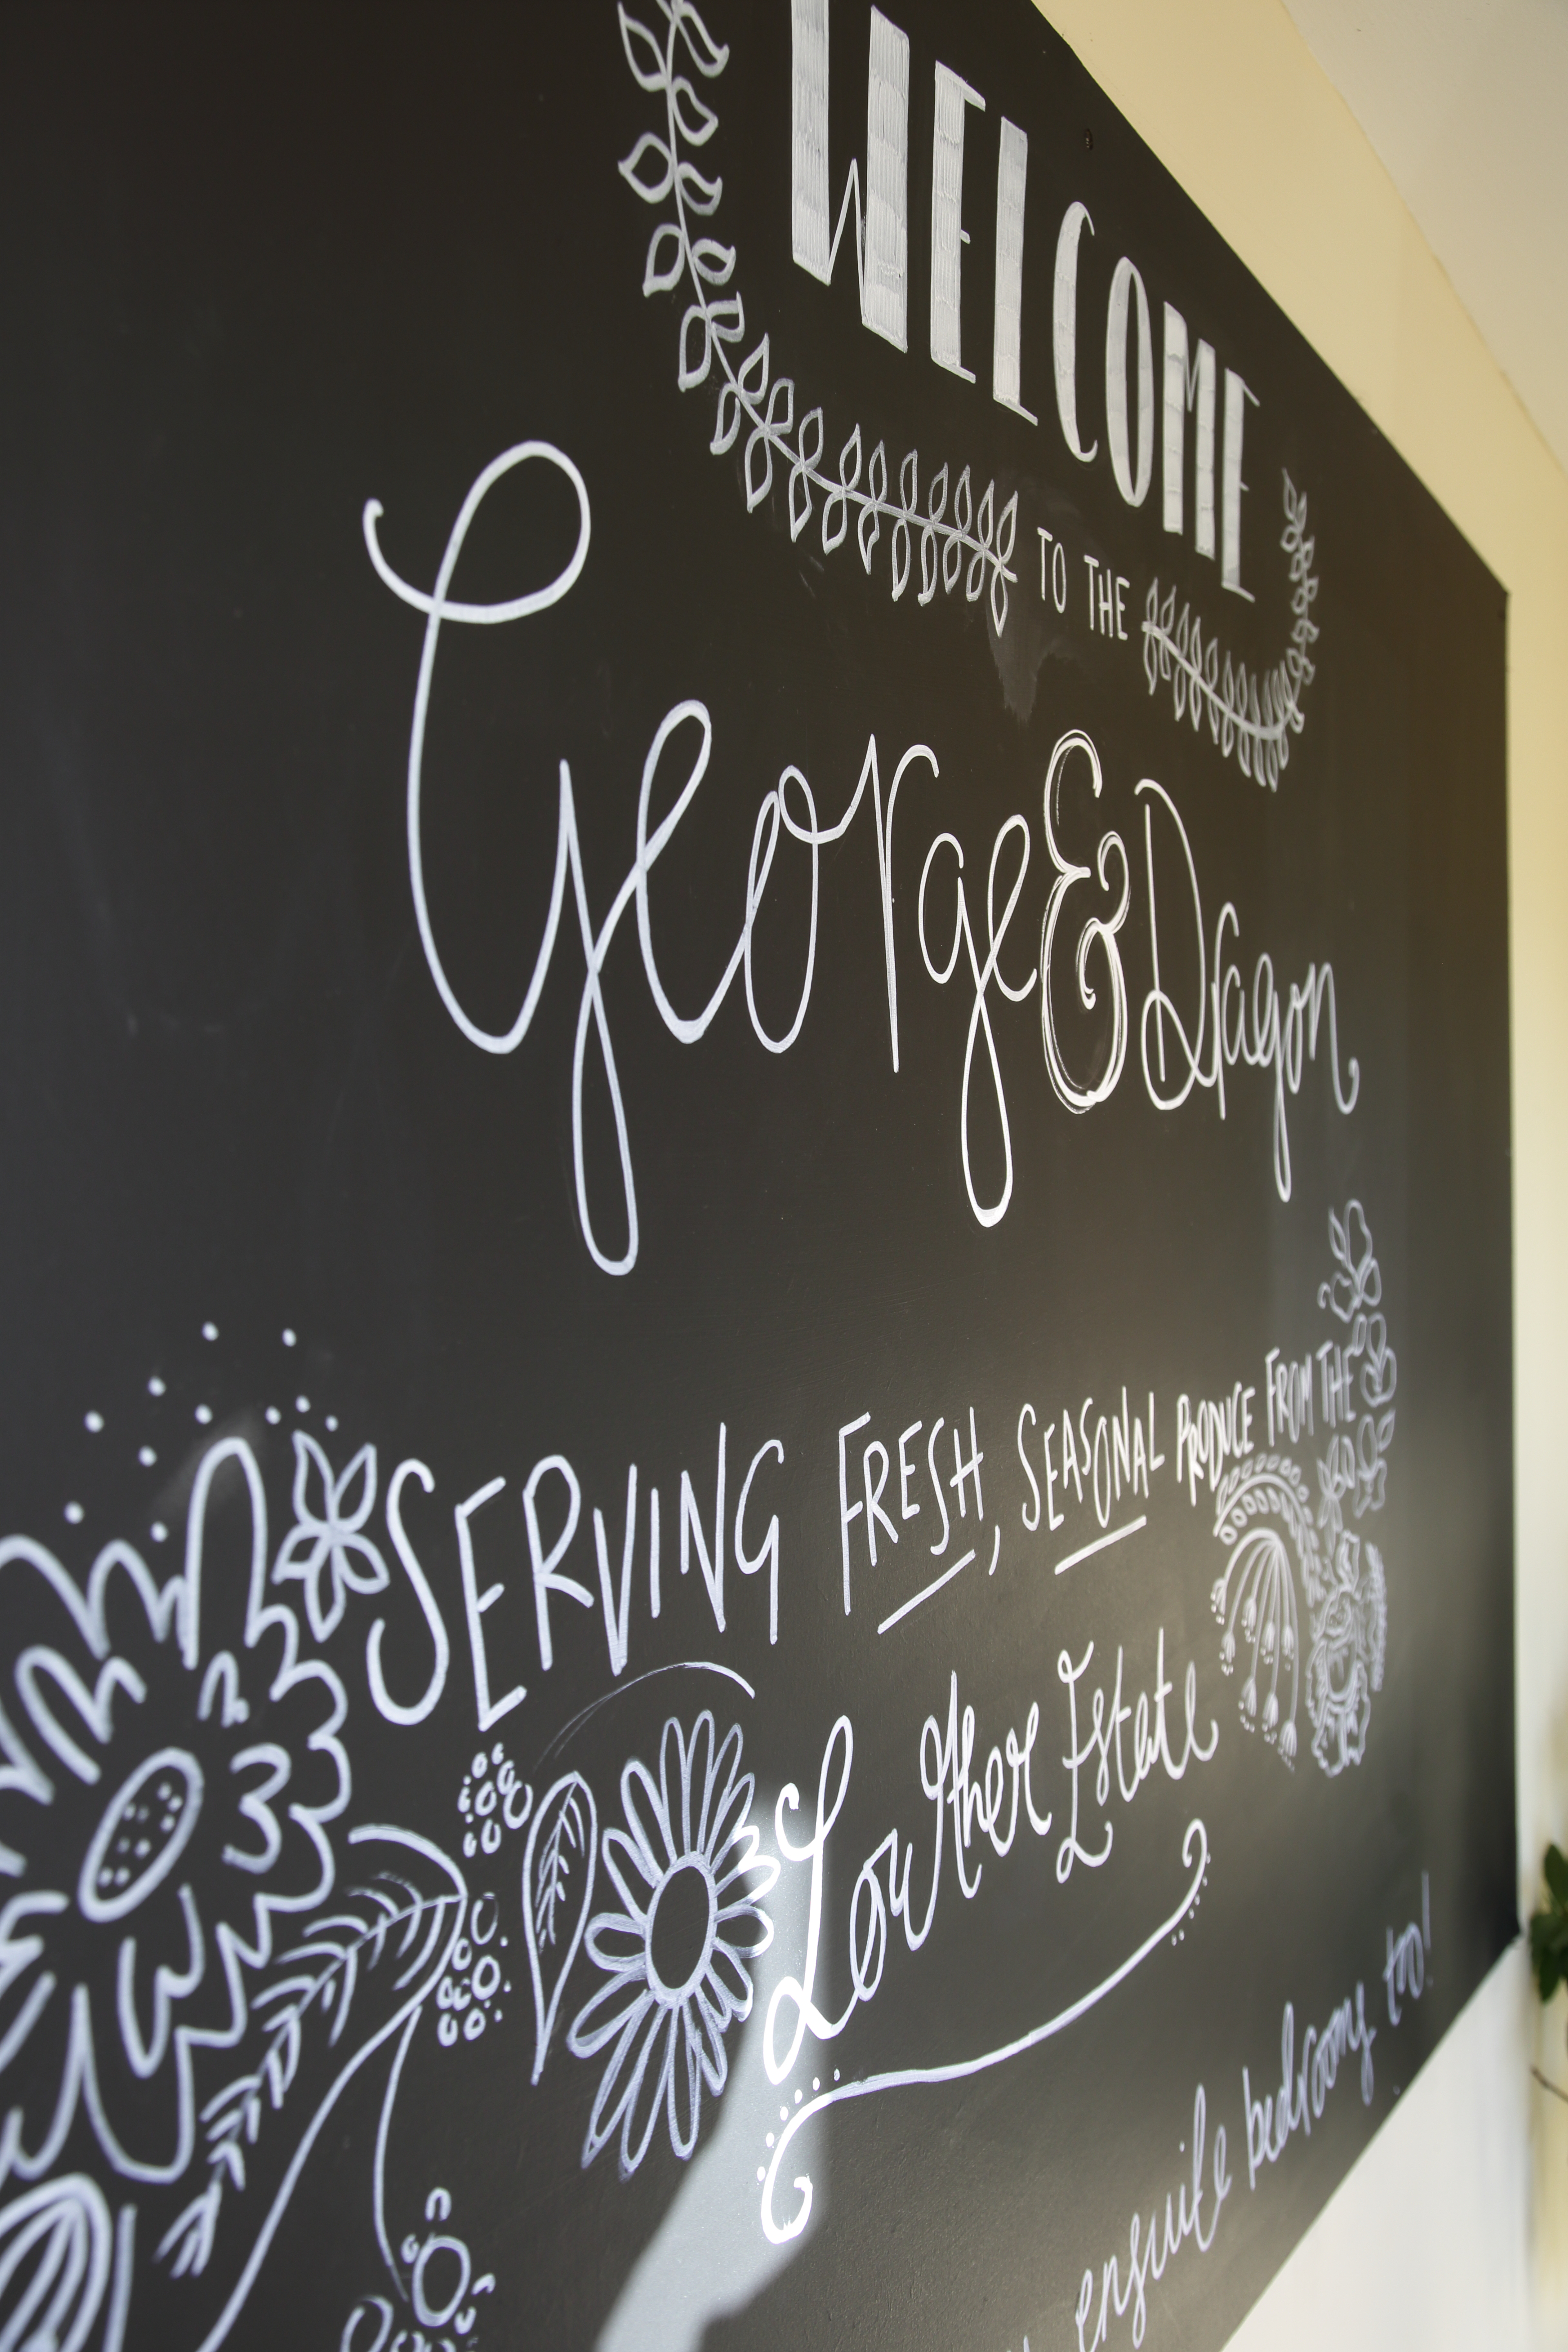 WELCOME
TO THE
George & Dragon
SERVING FRESH, SEASONAL PRODUCE FROM THE
Lowther Estate
ensuite bedrooms to!